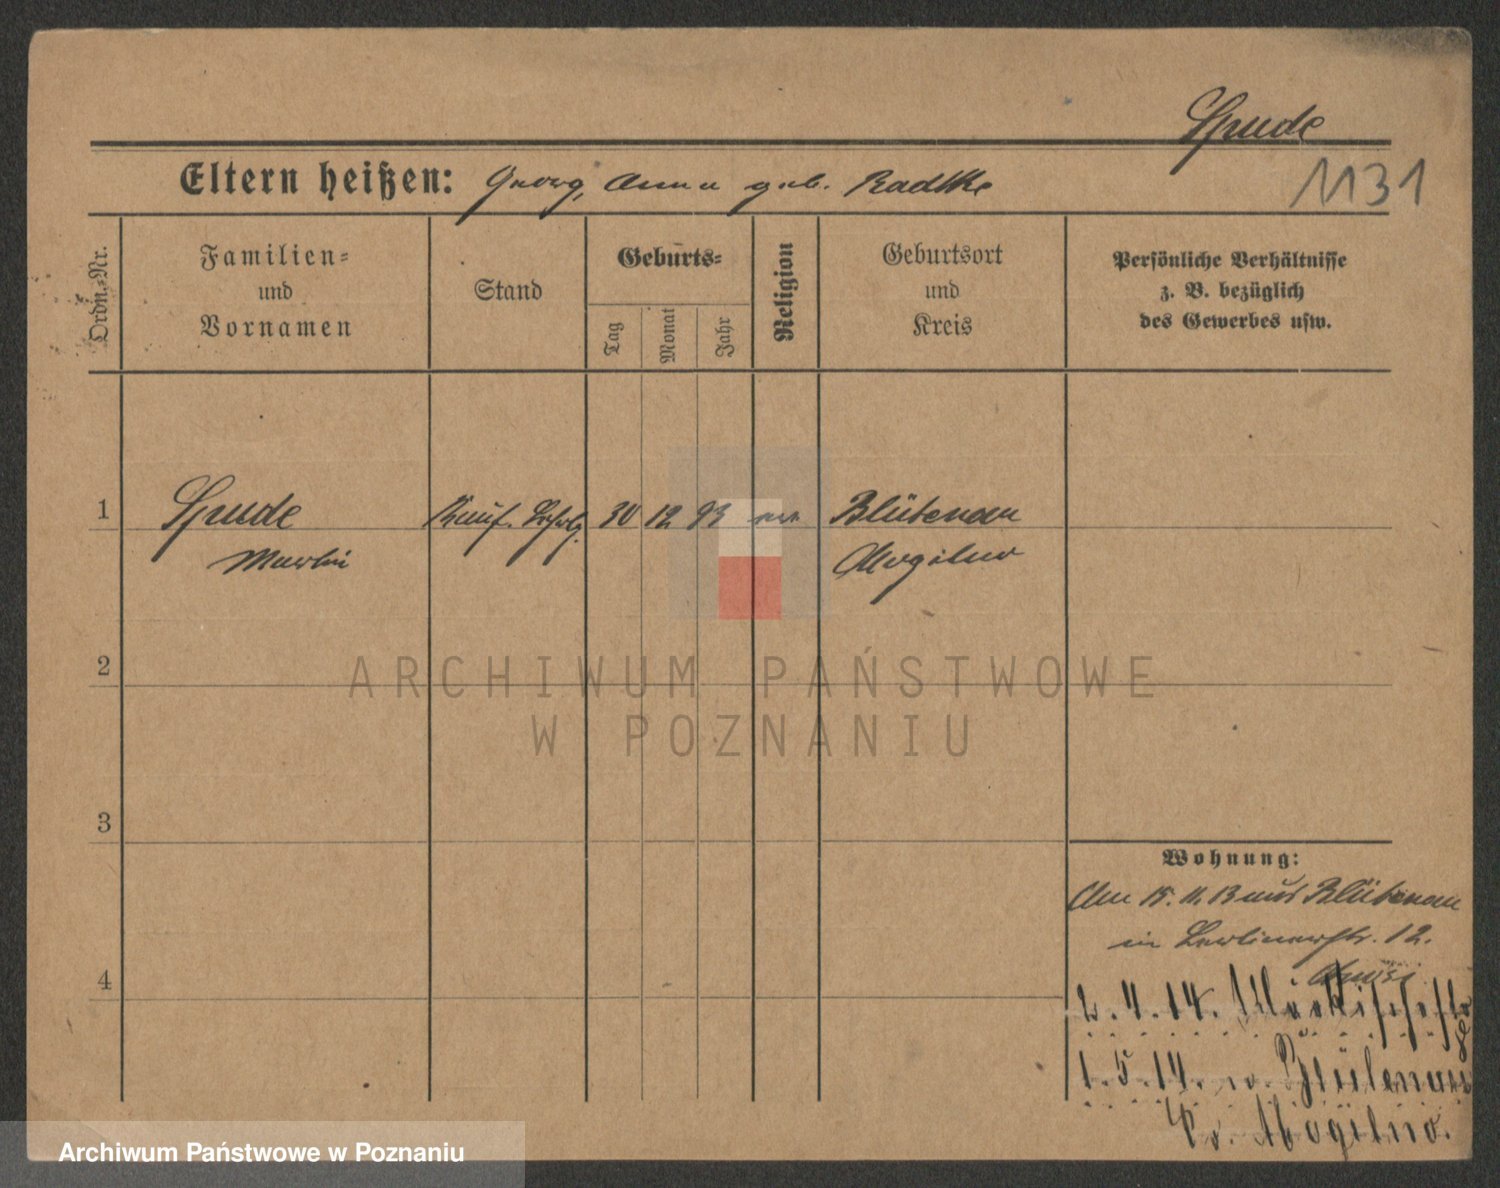 Spude
1131
Eltern heißen: Georg, Anna geb. Radtke
Ordn.-Nr.
Familien-
und
Vornamen
Stand
Geburts-
Tag
Monat
Jahr
Religion
Geburtsort
und
Kreis
Persönliche Verhältnisse
z. B. bezüglich
des Gewerbes usw.
1 Spude Kauf. 30 12 93 Blütenau
Martin Mogilno
2
ARCHIWUM PAŃSTWOWE
W POZNANIU
3
Wohnung:
Am 15. 11. 13 aus Blütenau
in Berlinerstr. 12.
4
2. 4. 14.
1. 5. 14. n. Blütenau
Kr. Mogilno.
Archiwum Państwowe w Poznaniu